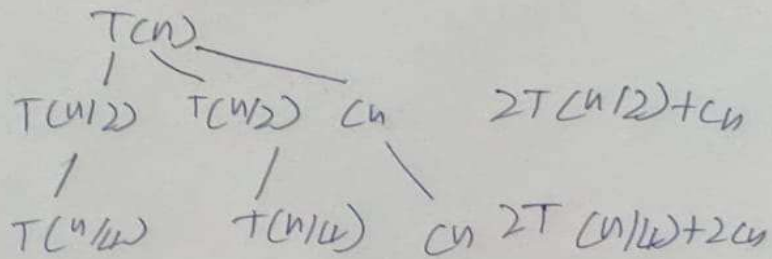 T(n)
T(n/2) T(n/2) Cn 2T(n/2)+Cn
T(n/4) T(n/4) Cn 2T(n/4)+2Cn